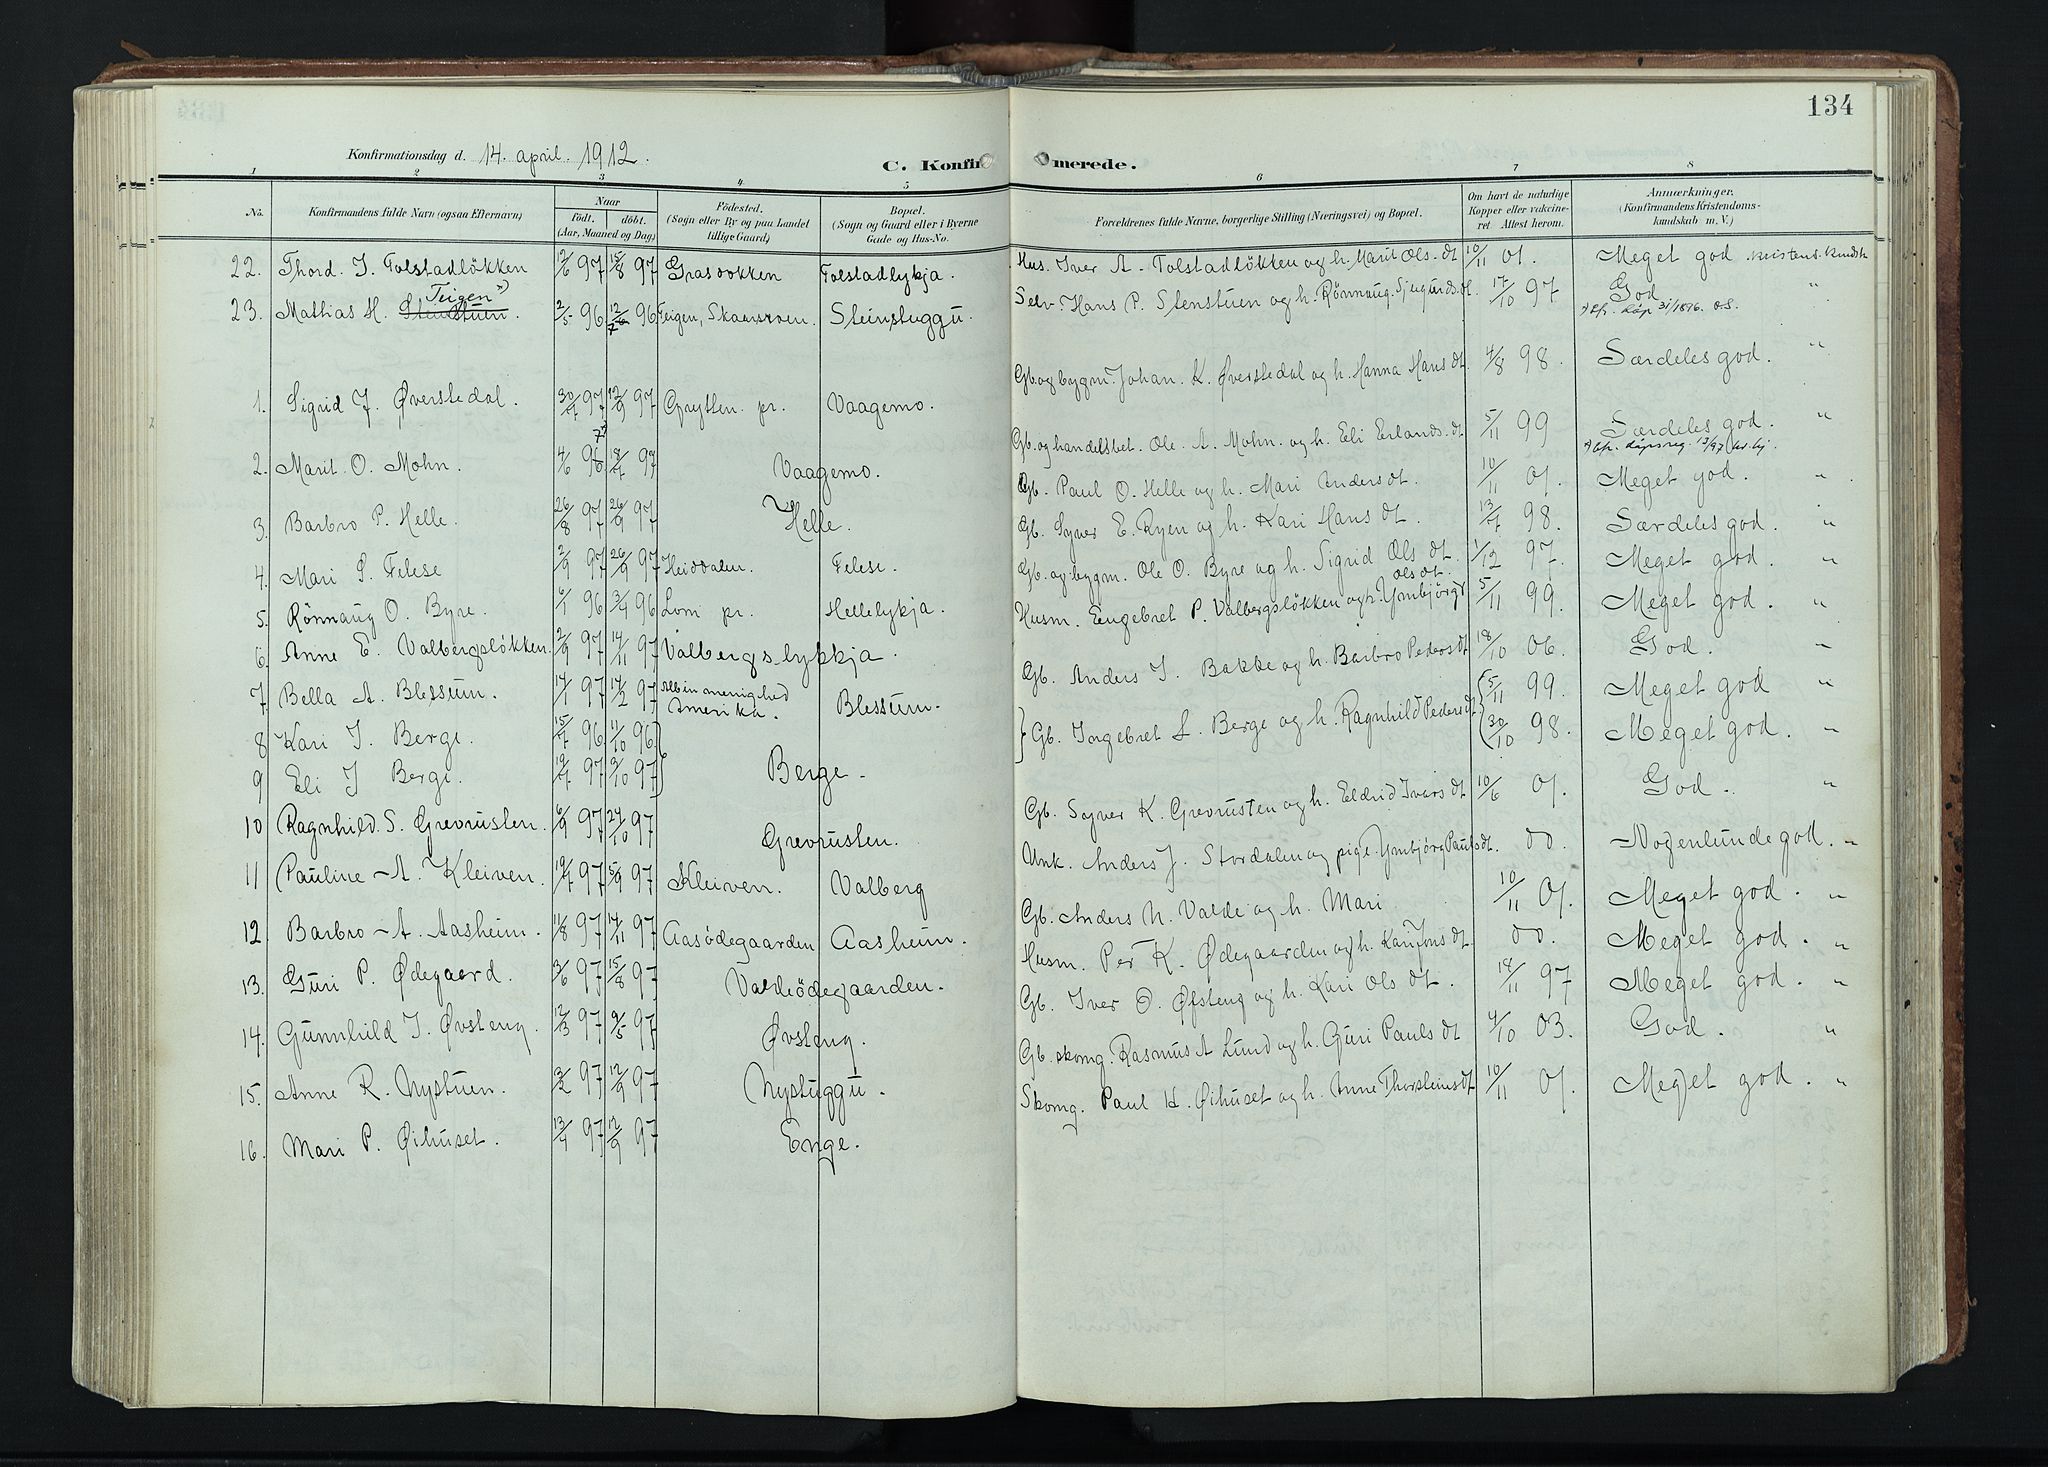 134
Konfirmationsdag d. 14. april. 1912.
C. Konfirmerede.
1 2 3 4 5 6 7 8
No. Konfirmandens fulde Navn (ogsaa Efternavn) Naar født. døbt. (Aar, Maaned og Dag) Fødested. (Sogn eller By og paa Landet tillige Gaard) Bopæl. (Sogn og Gaard eller i Byerne Gade og Hus-No. Forældrenes fulde Navne, borgerlige Stilling (Næringsvei) og Bopæl. Om havt de naturlige Kopper eller vakcineret. Attest herom. Anmærkninger. (Konfirmandens Kristendomskundskab m. V.)
22. Thord. I. Tolstadløkken 12/6 97 15/8 97 Grasvokken Tolstadlykja. Hus. Iver A. Tolstadløkken og h. Marit Ols. dt 10/11 01. Meget god kristend. kundsk
23. Mathias H. Stenstuen. Teigen *) 2/5 96 96 Teigen, Skaarvoen. Steinstuggu. Selv. Hans P. Stenstuen og h. Rønnaug. Sjugurds. dt. 17/10 97 God "
*) cfr. dåp 31/1896. O.S.
1. Sigrid J. Øverstedal. 30/7 97 12/9 97 Grytten. pr. Vaagemo. Gb og bygm. Johan. K. Øverstedal og h. Hanna Hans dt. 4/8 98. Særdeles god. "
2. Marit. O. Mohn. 4/6 96 18/7 97 Vaagemo. Gb. og handelsbet. Ole. A. Mohn. og h. Eli Erlands. dt 5/11 99 Særdeles god. "
*) cfr. dåpsreg. 13/97
3. Barbro P. Helle. 26/8 97 26/9 97 Helle. Gb. Paul O. Helle og h. Mari Anders dt. 10/11 01. Meget god. "
4. Mari S. Felese 2/9 97 26/9 97 Heidalen. Felese. Gb. Syver E. Ryen og h. Kari Hans dt. 13/7 98. Særdeles god. "
5. Rønnaug O. Byre. 6/1 96 3/4 96 Lom pr. Hellelykja. Gb. og bygm. Ole O. Byre og h. Sigrid Ols dt. 1/12 97. Meget god "
6. Anne E. Valbergsløkken. 2/9 97 14/11 97 Valbergslykkja. Husm. Engebret P. Valbergsløkken og h. Ymbjørg Ols dt. 5/11 99. Meget god. "
7 Bella A. Blessum. 14/1 97 14/2 97 Albin menighed Amerika. Blessum. Gb. Anders I. Bakke og h. Barbro Peders dt 18/10 06. God. "
8 Kari I. Berge. 15/7 96 11/10 96 } Gb. Ingebret L. Berge og h. Ragnhild Peders dt { 5/11 99. Meget god "
9 Eli I Berge. 19/7 97 3/10 97 Berge. 30/10 98. Meget god. "
10 Ragnhild. S. Grevrusten. 6/9 97 24/10 97 Grevrusten. Gb. Syver K. Grevrusten og h. Eldrid Ivars dt 10/6 01. God. "
11 Pauline A. Kleiven. 19/7 97 5/9 97 Kleiven. Valberg Unk. Anders J. Stordalen og pige. Ymbjørg Pauls dt. do. Nogenlunde god. "
12. Barbro A. Aasheim. 11/8 97 14/11 97 Aasødegaarden Aasheim. Gb. Anders N. Valde og h. Mari 10/11 01. Meget god. "
13. Guri P. Ødegaard. 3/6 97 15/8 97 Valdeødegaarden. Husm. Per K. Ødegaarden og h. Kari Jons dt. do. Meget god. "
14. Gunnhild I. Øvsteng. 12/3 97 9/5 97 Øvsteng. Gb. Iver O. Øfsteng og h. Kari Ols dt. 14/11 97 Meget god. "
15. Anne R. Nystuen. 3/2 97 12/9 97 Nystuggu. Gb. skomg. Rasmus A Lund og h. Guri Pauls dt 4/10 03. God. "
16. Mari P. Øihuset. 13/7 97 12/9 97 Enge. Skomg. Paul H. Øihuset og h. Anne Thorsteins dt 10/11 01. Meget god. "